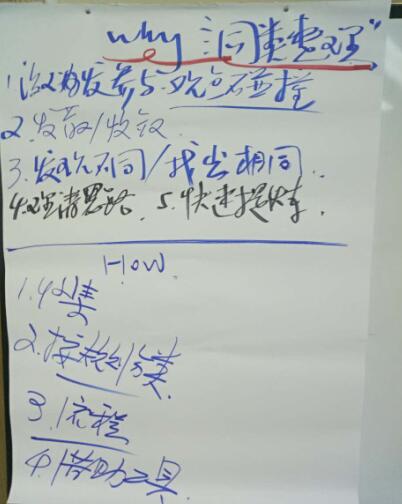 why 词类整理"
1.激发参与.观点碰撞
2.发散/收敛
3.发现不同/找出相同
4.理清思路. 5.快速提炼.
HOW
1.收集
2.按规则分类
3.流程
4.借助工具